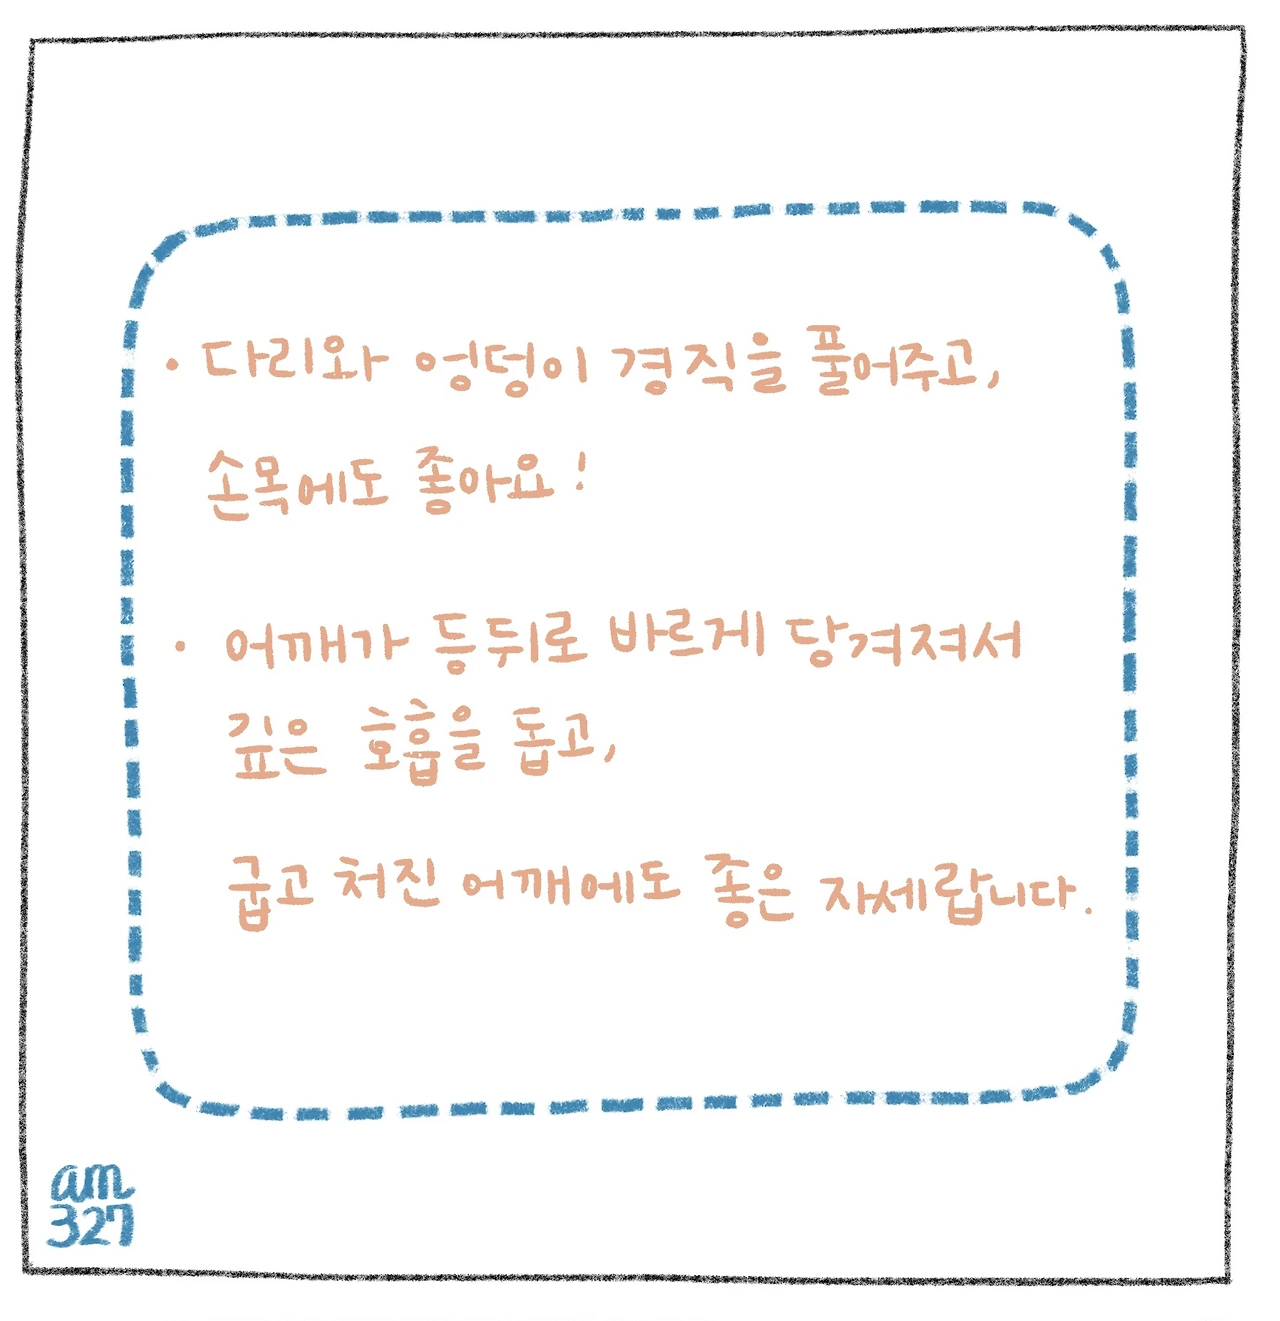 • 다리와 엉덩이 경직을 풀어주고,
손목에도 좋아요!
• 어깨가 등뒤로 바르게 당겨져서
깊은 호흡을 돕고,
굽고 처진 어깨에도 좋은 자세랍니다.
am
327